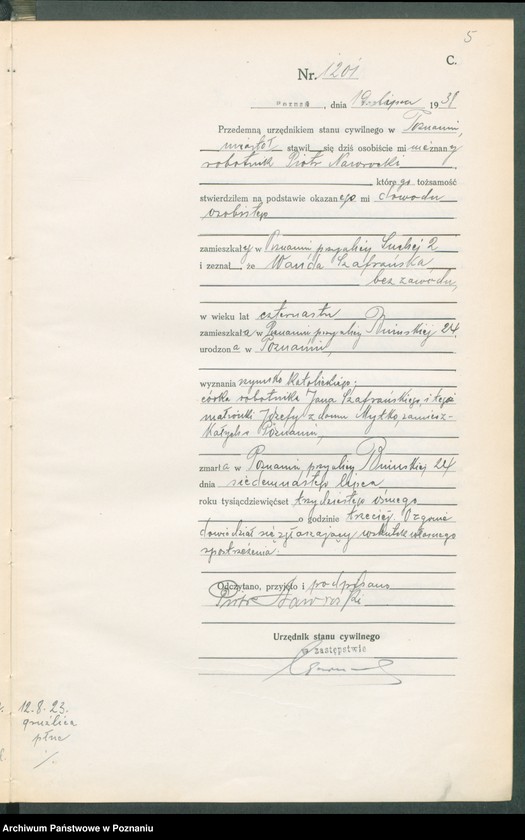 5
C.
Nr. 1201
Poznań, dnia 18 lipca 1938
Przedemną urzędnikiem stanu cywilnego w Poznaniu,
miasto, stawił się dziś osobiście mi nieznany
robotnik Piotr Naworski
którego tożsamość
stwierdziłem na podstawie okazanego mi dowodu
osobistego
zamieszkały w Poznaniu, przy ulicy Suchej 2
i zeznał, że Wanda Szafrańska,
bez zawodu,
w wieku lat czternastu
zamieszkała w Poznaniu przy ulicy Bnińskiej 24.
urodzona w Poznaniu,
wyznania rzymsko katolickiego,
córka robotnika Jana Szafrańskiego, i tegoż
małżonki Józefy z domu Mytko, zamiesz-
kałych w Poznaniu,
zmarła w Poznaniu, przy ulicy Bnińskiej 24
dnia siedemnastego lipca
roku tysiącdziewięćset trzydziestego ósmego
o godzinie trzeciej. O zgonie
dowiedział się zgłaszający wskutek własnego
spostrzeżenia.
Odczytano, przyjęto i podpisano
Piotr Naworski
Urzędnik stanu cywilnego
w zastępstwie
12.8.23.
gruźlica
płuc
Archiwum Państwowe w Poznaniu